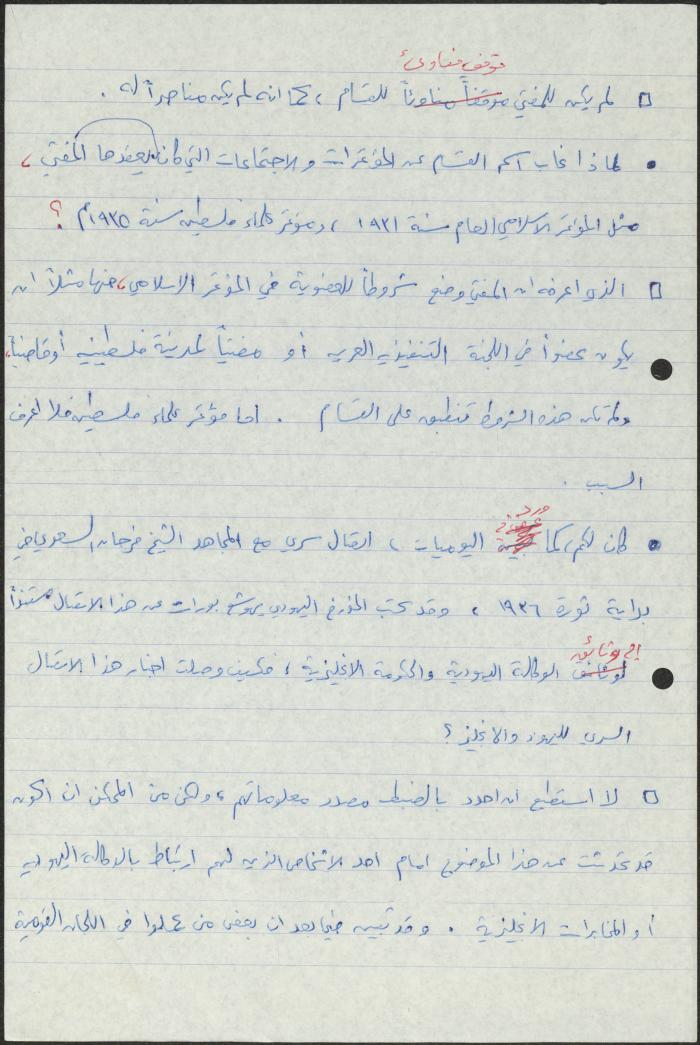 موقف مناوئ
□ لم يكن للمفتي موقفاً مناوئاً للقسام ، كما انه لم يكن مناصراً له .
• لماذا غاب اسم القسام عن المؤتمرات والاجتماعات التي كان يعقدها المفتي ،
مثل المؤتمر الاسلامي العام سنة ١٩٣١ ، ومؤتمر علماء فلسطين سنة ١٩٣٥م ؟
□ الذي اعرفه ان المفتي وضع شروطاً للعضوية في المؤتمر الاسلامي، منها مثلاً ان
يكون عضواً في اللجنة التنفيذية العربية أو مفتياً لمدينة فلسطينية أو قاضياً،
ولم تكن هذه الشروط تنطبق على القسام . اما مؤتمر علماء فلسطين فلا اعرف
السبب .
ورد في
• كان لكم، كما اليوميات ، اتصال سري مع المجاهد الشيخ فرحان السعدي في
بداية ثورة ١٩٣٦ ، وقد كتب المؤرخ اليهودي يهوشع بورات عن هذا الاتصال مستنداً
إلى وثائق
لوثائق الوكالة اليهودية والحكومة الانجليزية ، فكيف وصلت اخبار هذا الاتصال
السري لليهود والانجليز ؟
□ لا استطيع ان احدد بالضبط مصدر معلوماتهم ، ولكن من الممكن ان اكون
قد تحدثت عن هذا الموضوع امام احد الاشخاص الذين لهم ارتباط بالوكالة اليهودية
أو المخابرات الانجليزية . وقد تبين فيما بعد ان بعض من عملوا في اللجان القومية